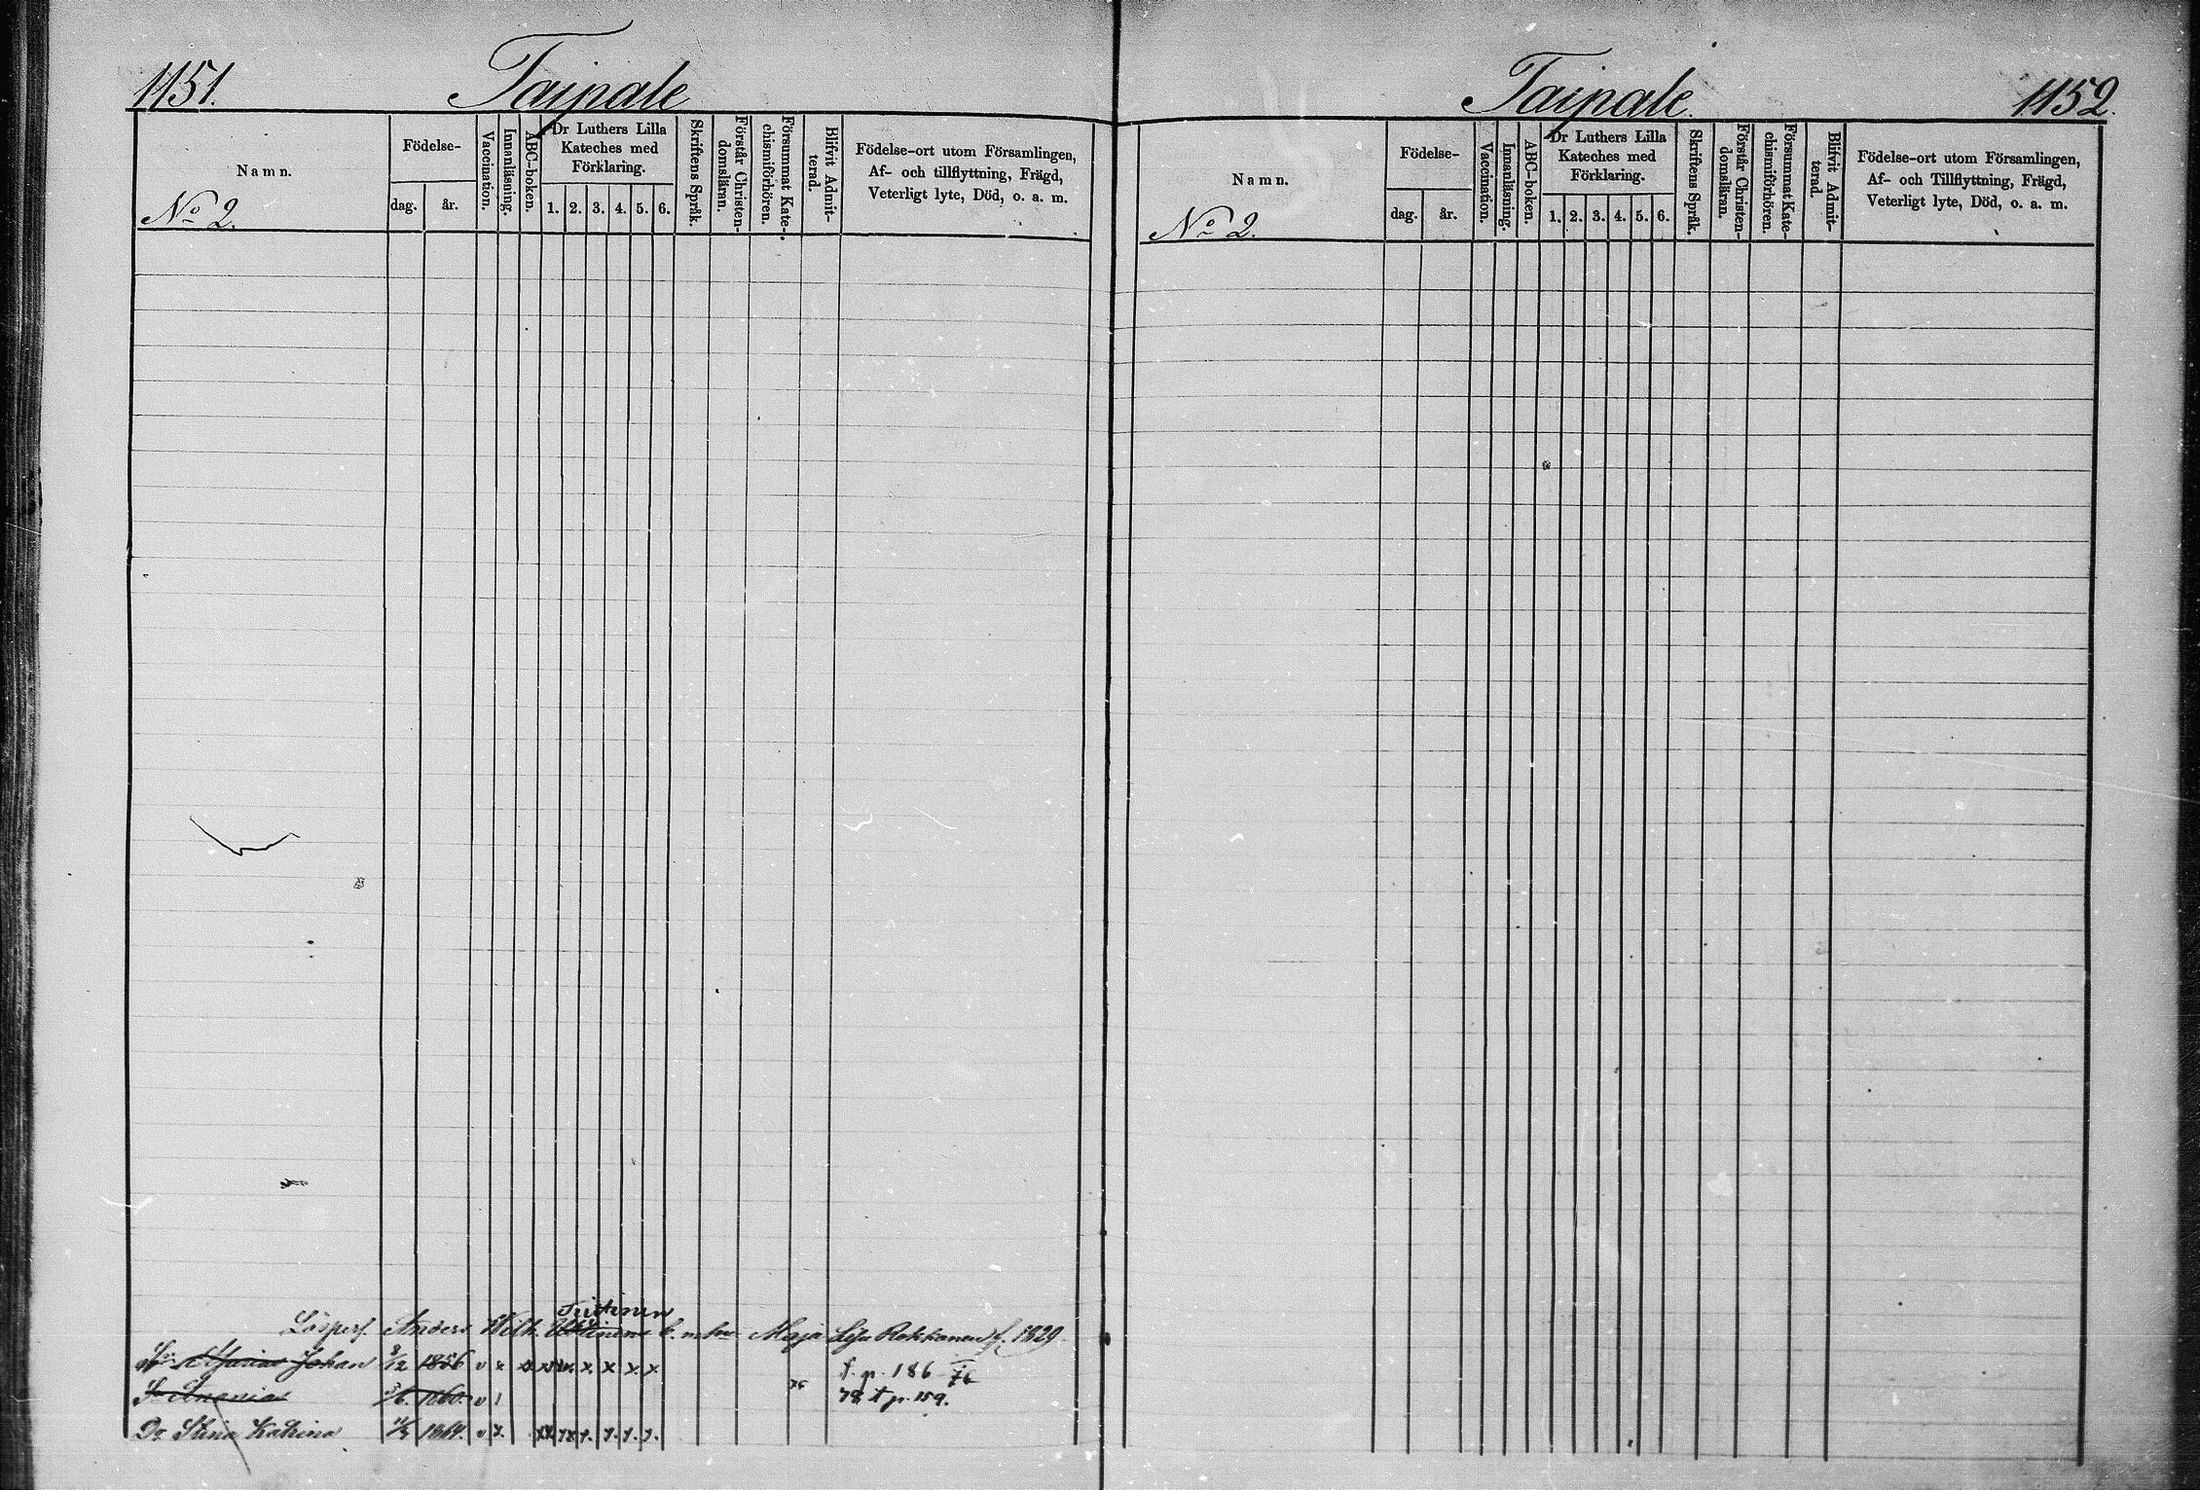 1151.
Taipale
Namn.
No 2.
Födelse-
dag. år.
Vaccination.
Innanläsning.
ABC-boken.
Dr Luthers Lilla
Kateches med
Förklaring.
1. 2. 3. 4. 5. 6.
Skriftens Språk.
Förstår Christen-
domsläran.
Försummat Kate-
chismiförhören.
Blifvit Admit-
terad.
Födelse-ort utom Församlingen,
Af- och tillflyttning, Frägd,
Veterligt lyte, Död, o. a. m.
Lösperf. Anders Wilh. b. Maja Lisa Rokkanen f. 1829
Johan 8/12 1856 v x x. x. x. x
f. p. 186 76
Anania 1860. v
78 t p. 159.
Dr Stina Katrina 11/5 1864. v
Taipale.
1152.
Namn.
No 2.
Födelse-
dag. år.
Vaccination.
Innanläsning.
ABC-boken.
Dr Luthers Lilla
Kateches med
Förklaring.
1. 2. 3. 4. 5. 6.
Skriftens Språk.
Förstår Christen-
domsläran.
Försummat Kate-
chismiförhören.
Blifvit Admit-
terad.
Födelse-ort utom Församlingen,
Af- och Tillflyttning, Frägd,
Veterligt lyte, Död, o. a. m.